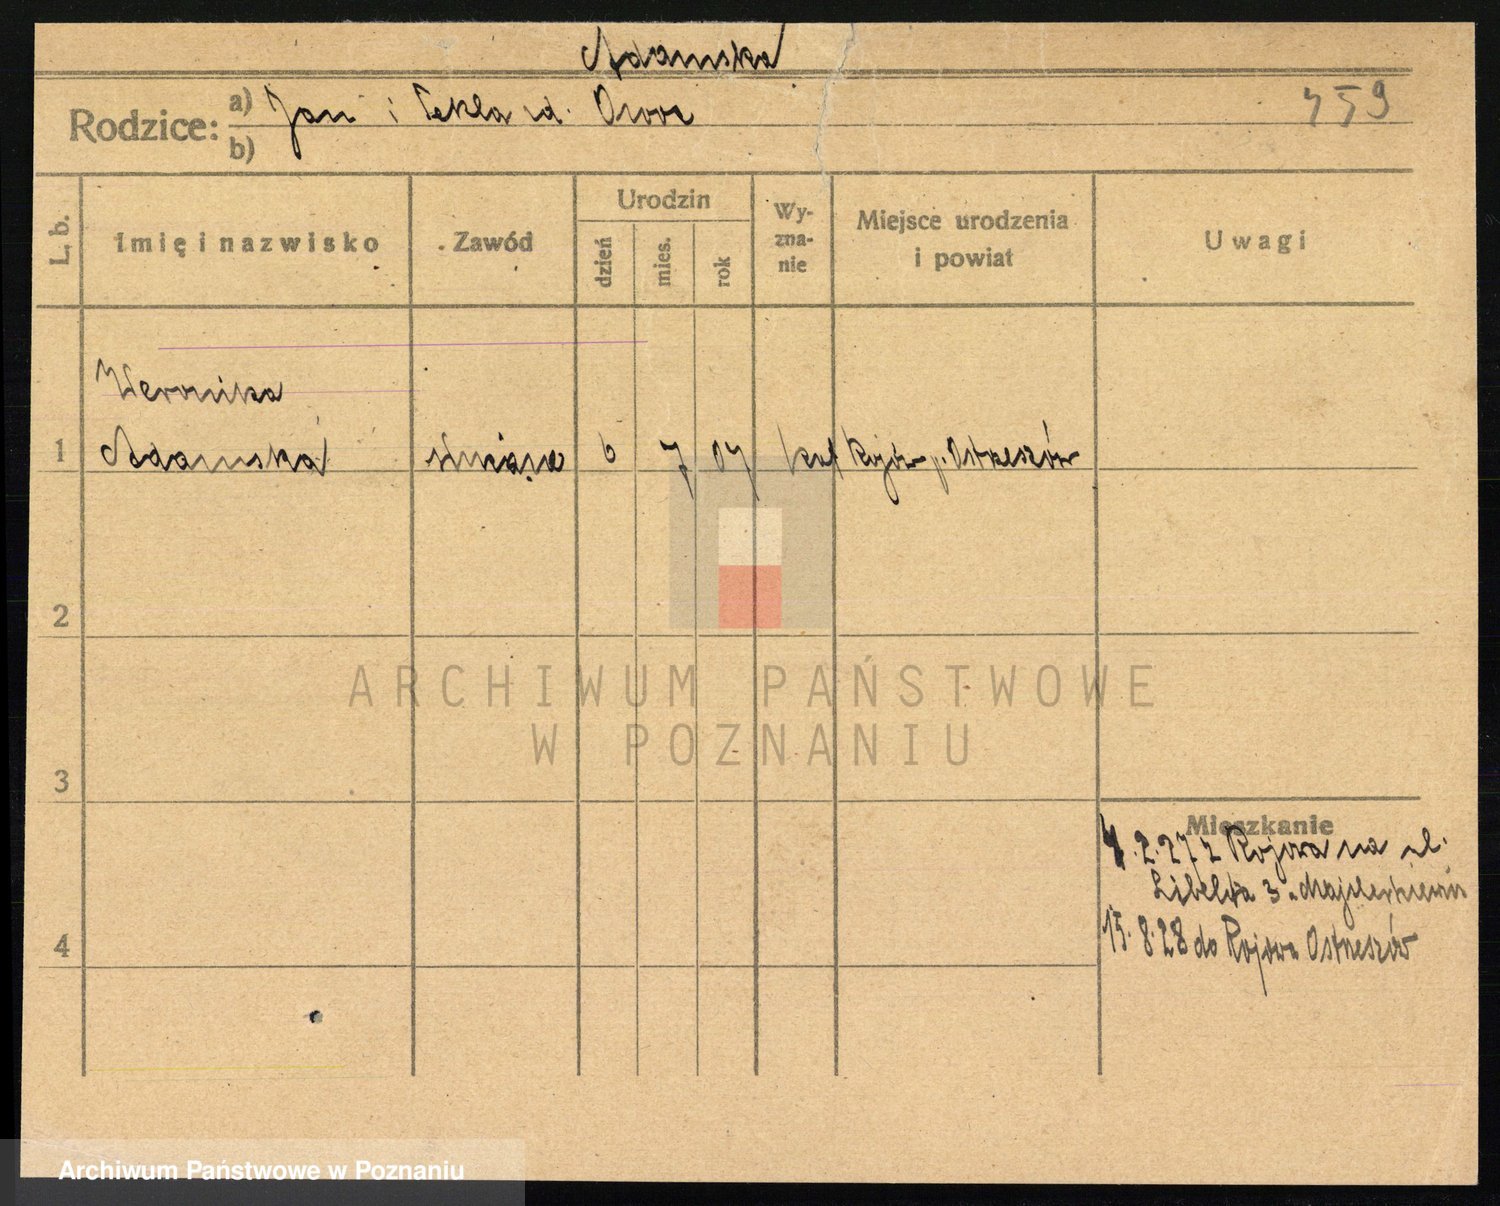 Adamska
Rodzice: a) Jan i Tekla zd.
b)
759
L. b. Imię i nazwisko Zawód Urodzin dzień mies. rok Wyznanie Miejsce urodzenia i powiat Uwagi
Weronika
1 Adamska służąca 6 7 07 kat Rojów p. Ostrzeszów
2
ARCHIWUM PAŃSTWOWE
W POZNANIU
3
Mieszkanie
4.2.27 z Rojowa na ul.
Libelta 3
4
15.8.28 do Rojowa Ostrzeszów
Archiwum Państwowe w Poznaniu